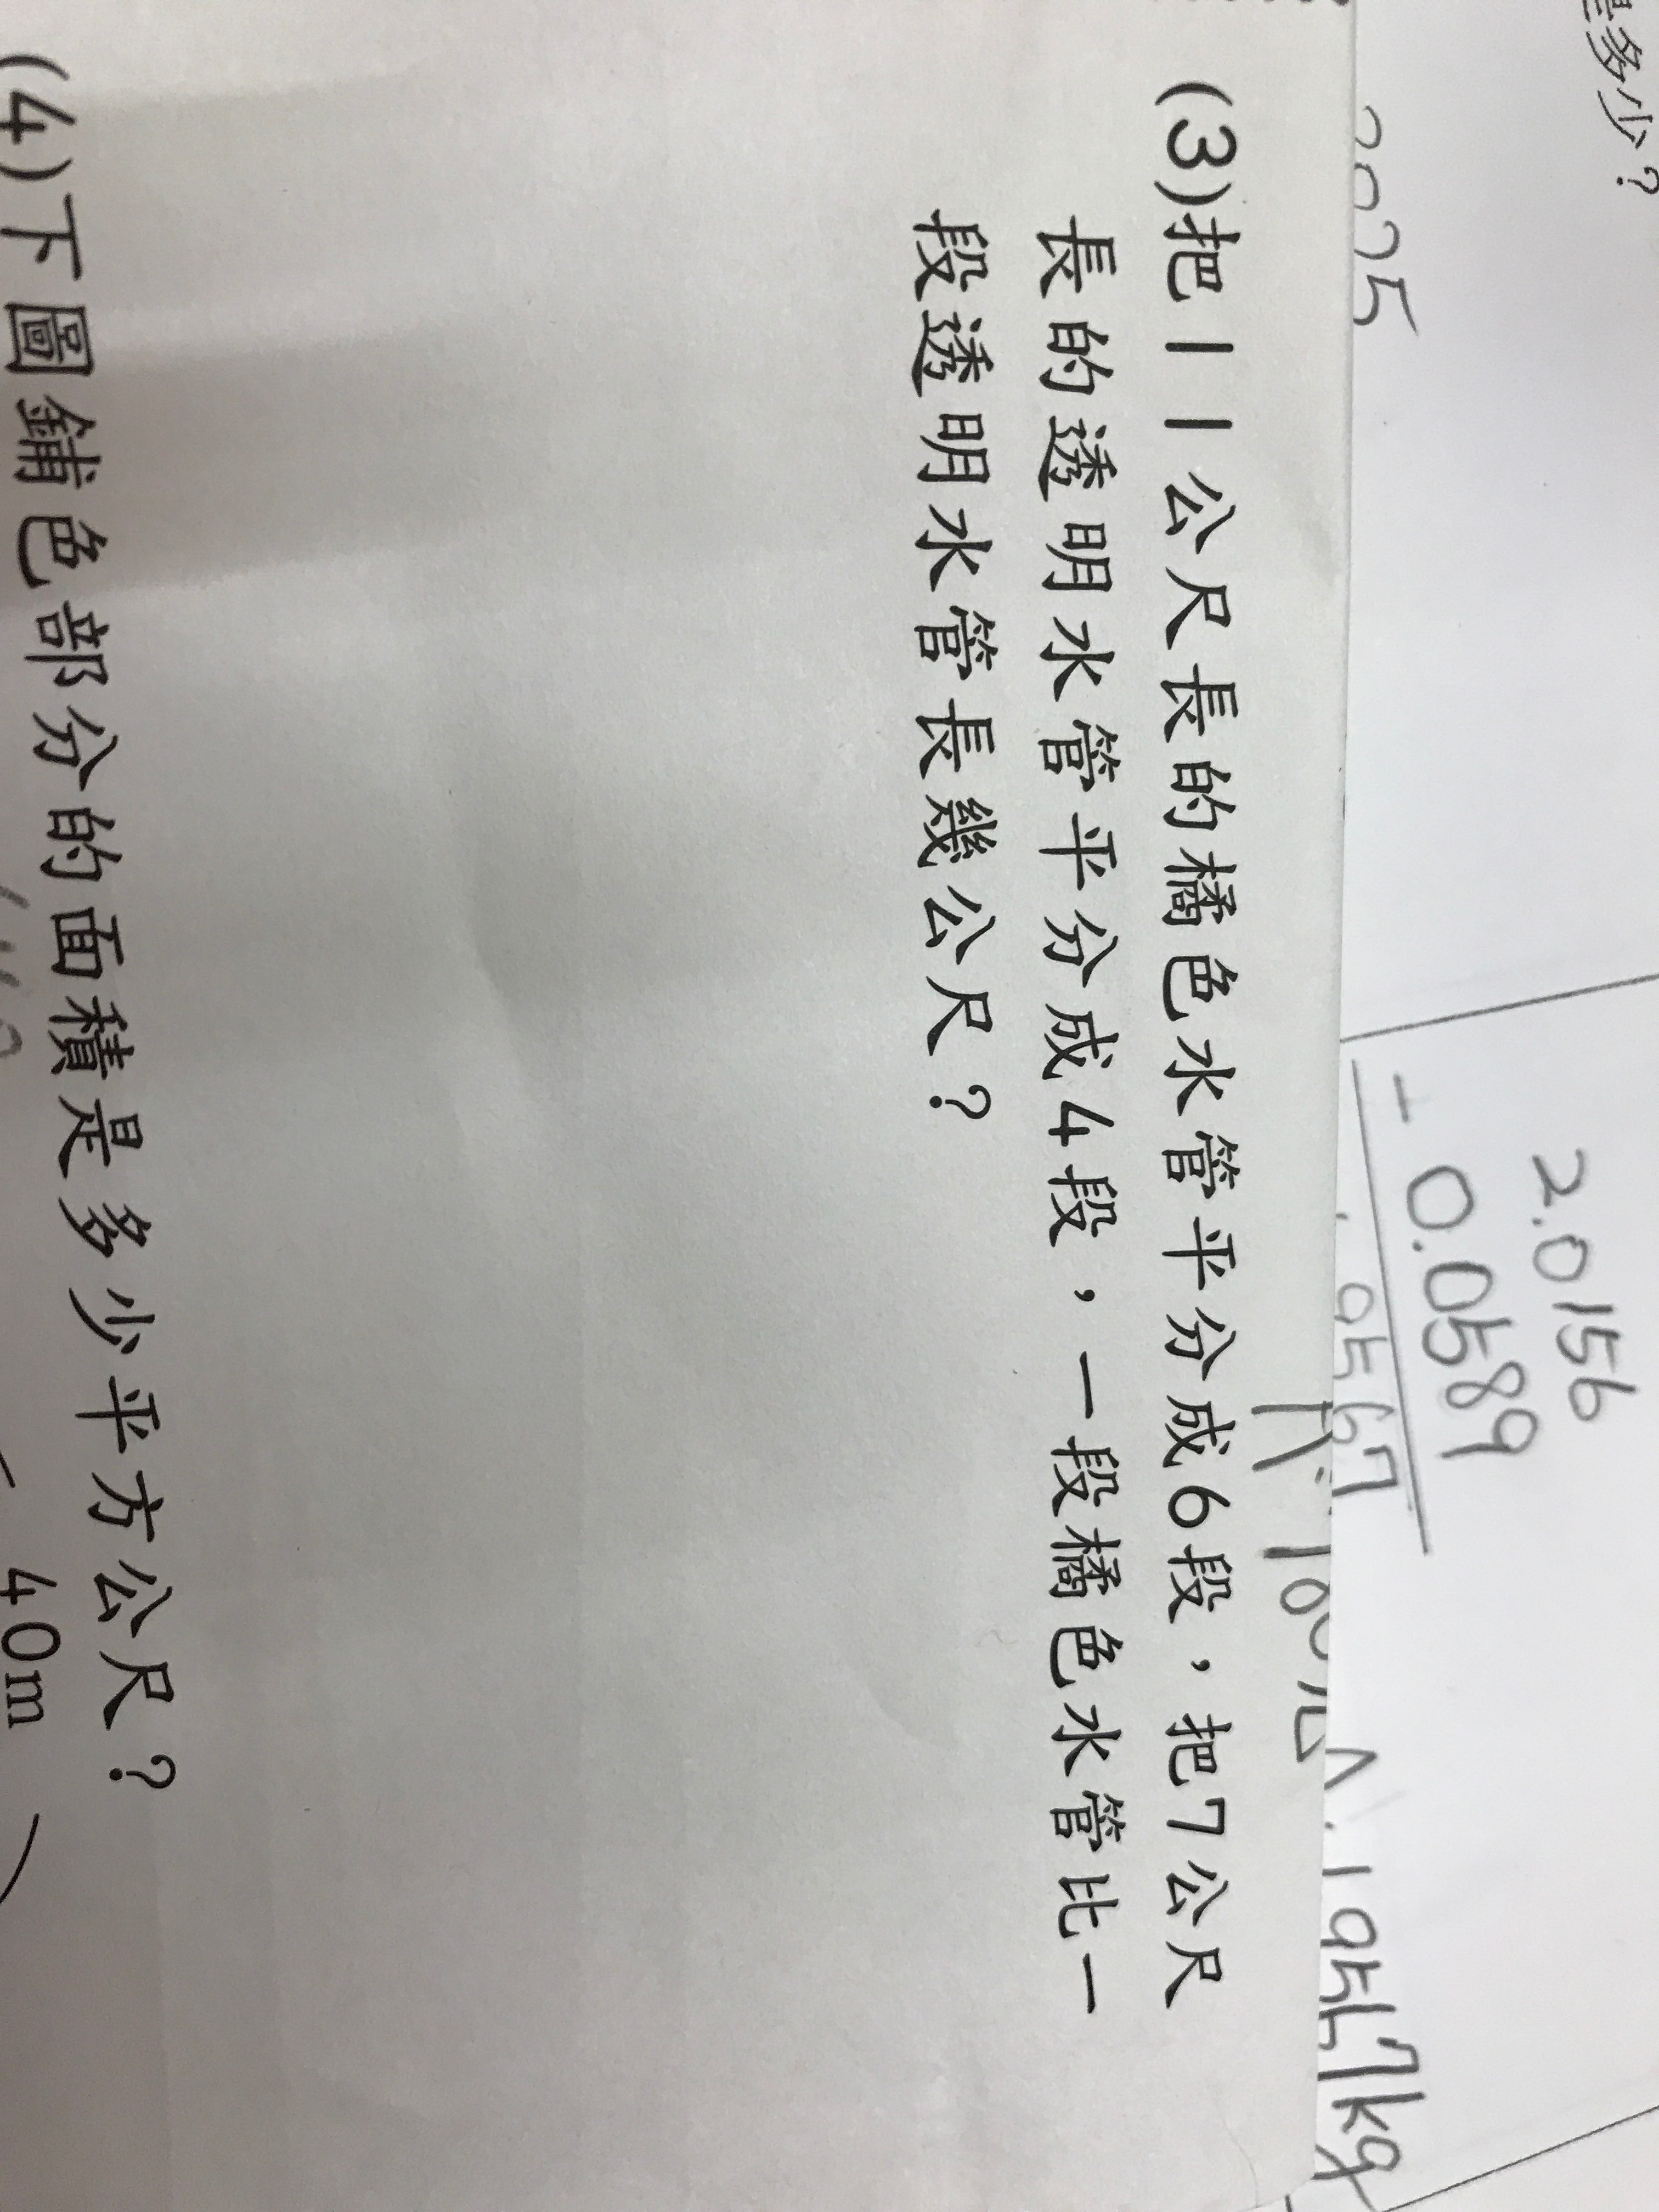 多少？
2.0156
- 0.0589
.9567
(3)把11公尺長的橘色水管平分成6段，把7公尺
長的透明水管平分成4段，一段橘色水管比一
段透明水管長幾公尺？
(4)下圖鋪色部分的面積是多少平方公尺？
40m